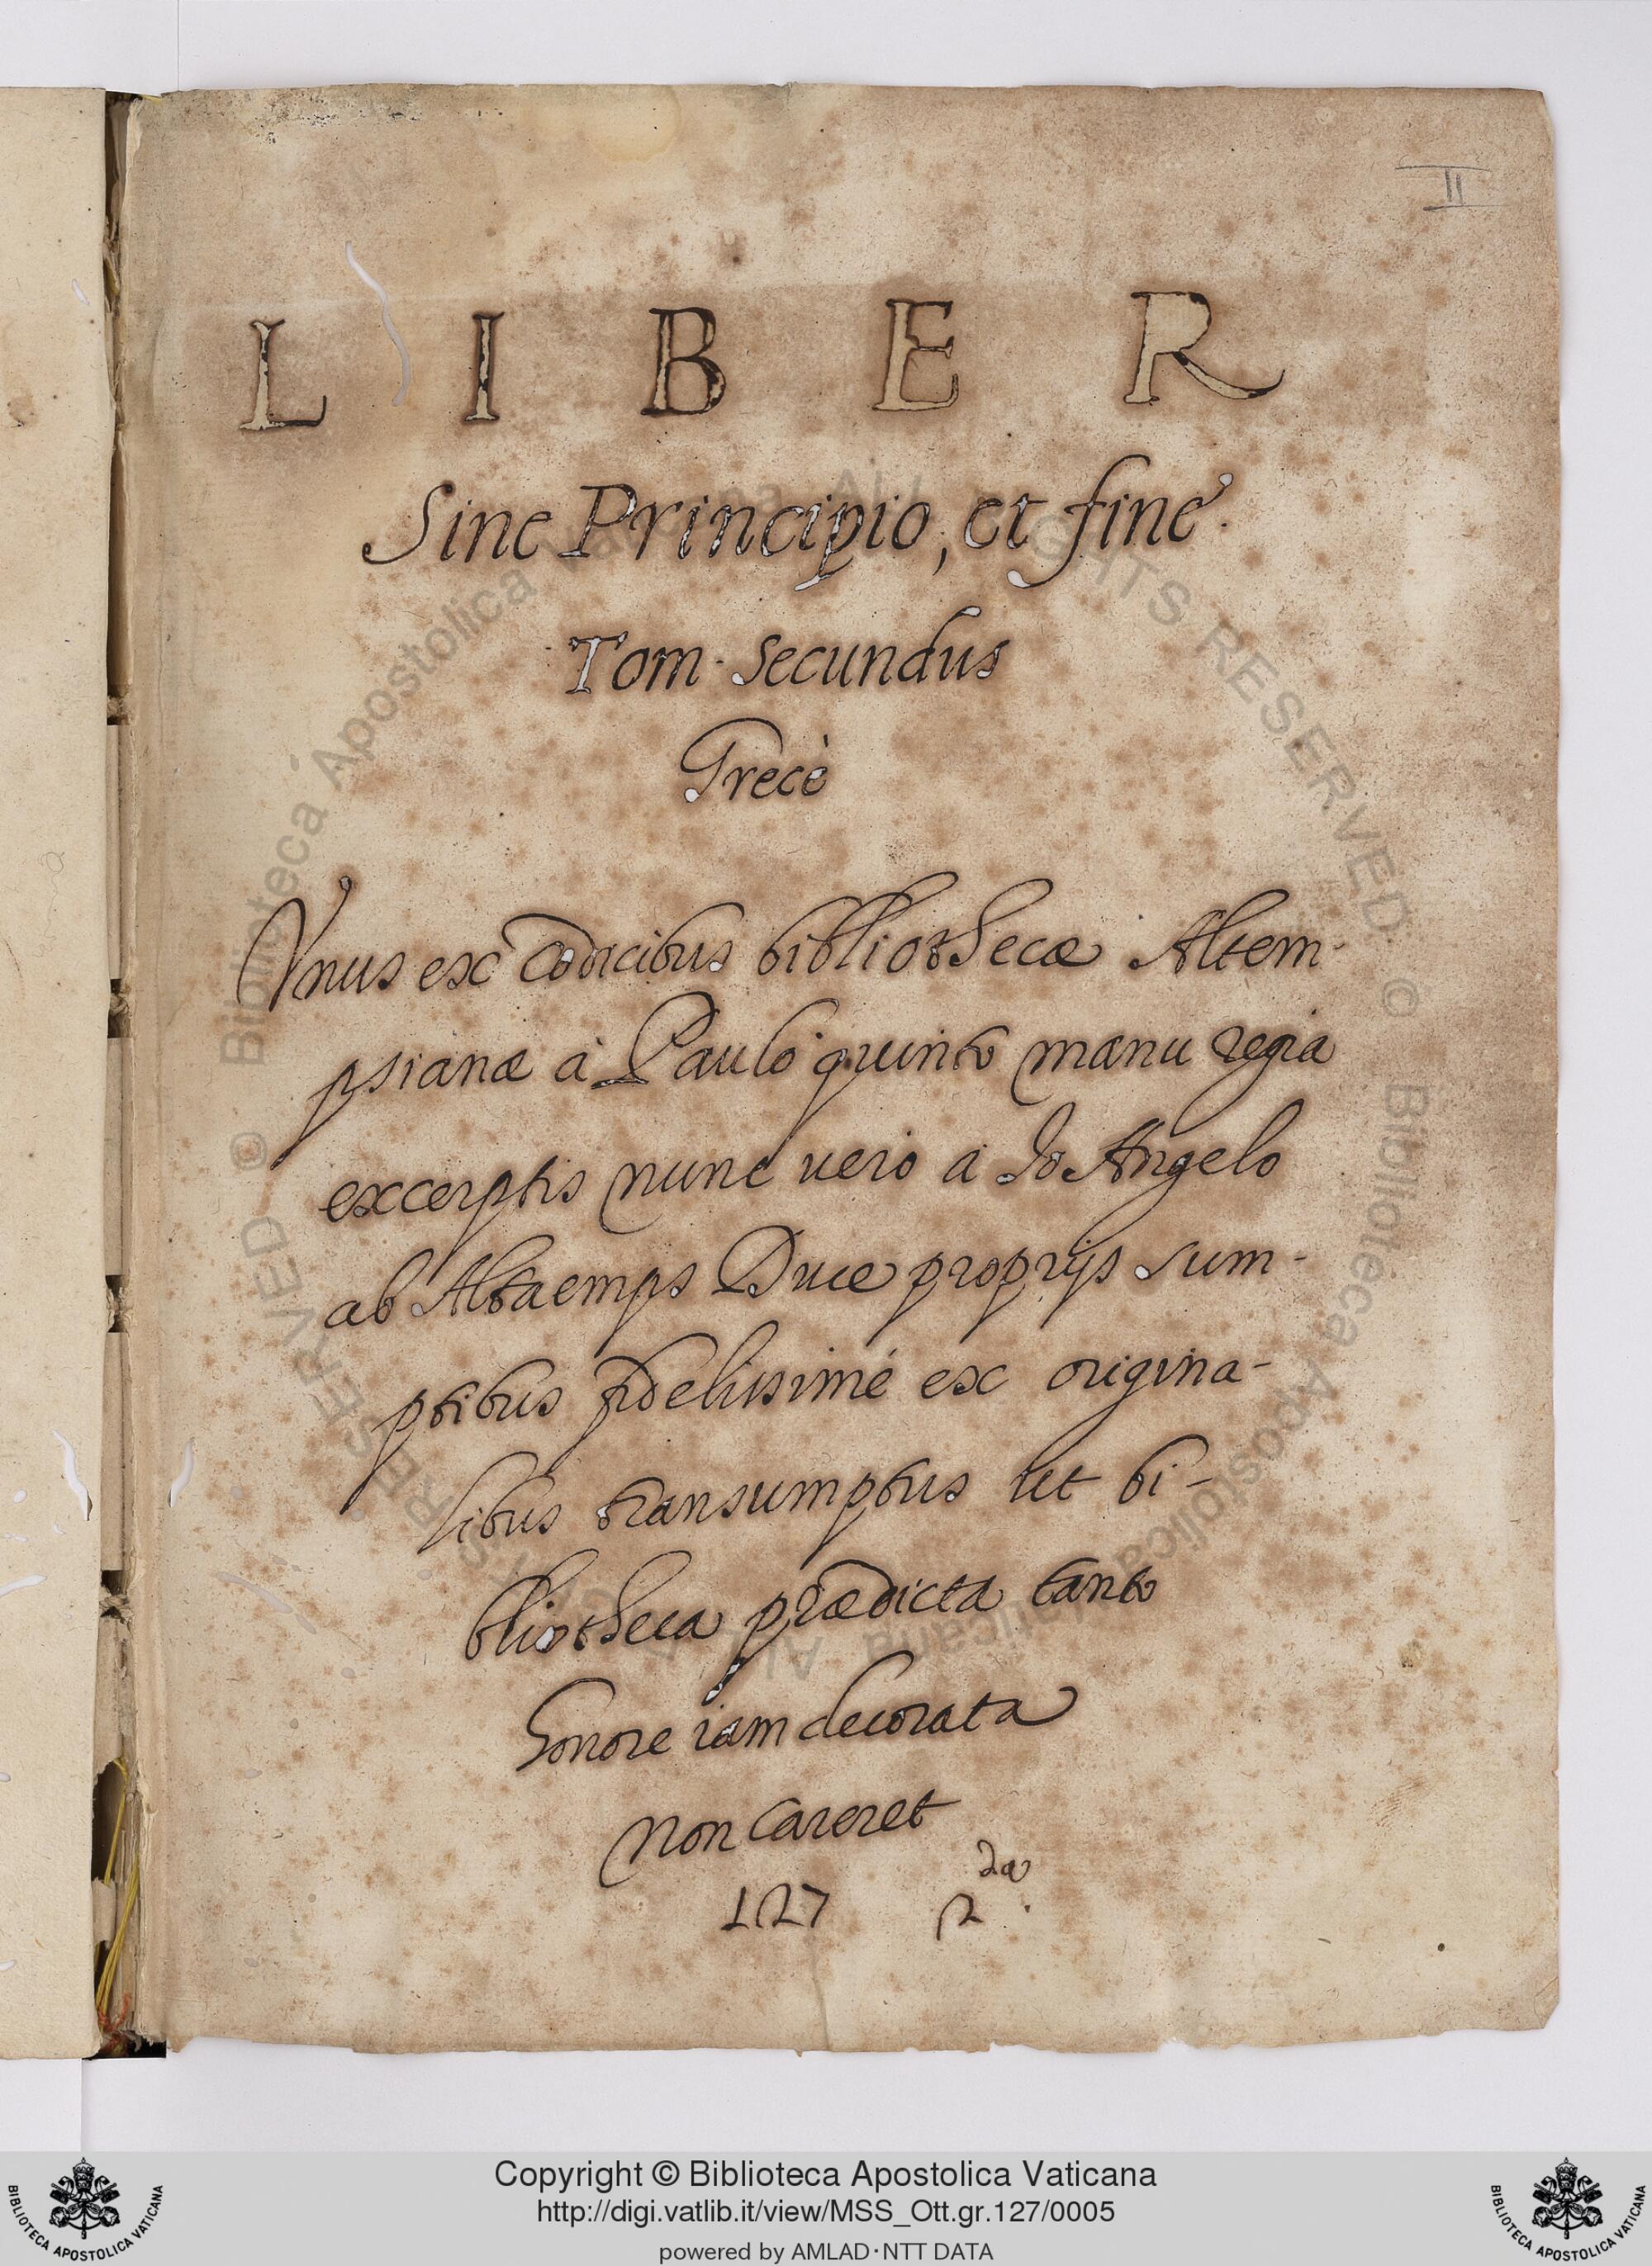 II
LIBER
Sine Principio, et fine.
Tom. Secundus
Grecè
Vnus ex Codicibus bibliothecæ Altem-
psianæ à Paulo quinto manu regia
excerptis nunc uero a Io Angelo
ab Altaemps Duce proprijs sum-
ptibus fidelissimè ex origina-
libus transumptus ut bi-
bliotheca prædicta tanto
honore iam decorata
non careret
127
Copyright © Biblioteca Apostolica Vaticana
http://digi.vatlib.it/view/MSS_Ott.gr.127/0005
powered by AMLAD·NTT DATA
BIBLIOTECA APOSTOLICA VATICANA
BIBLIOTECA APOSTOLICA VATICANA